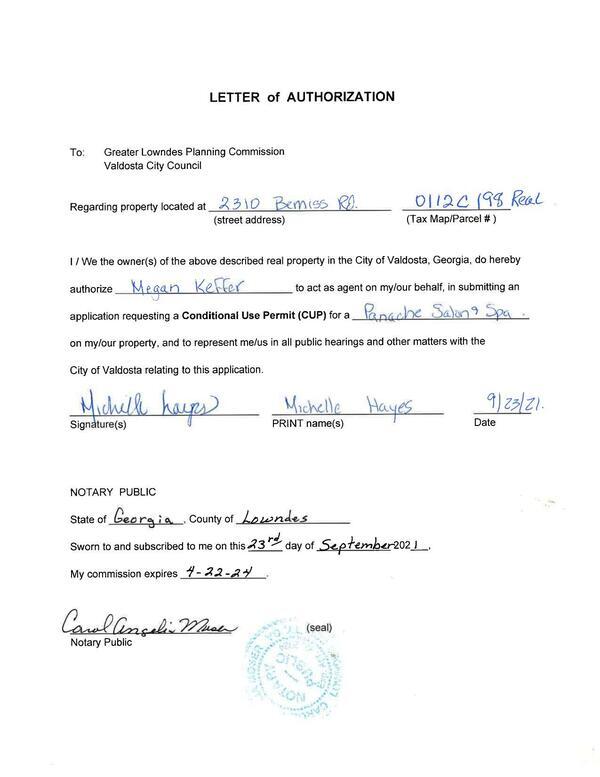 LETTER of AUTHORIZATION
To: Greater Lowndes Planning Commission
Valdosta City Council
Regarding property located at 2310 Bemiss Rd. 0112C 198 Real
(street address) (Tax Map/Parcel # )
I / We the owner(s) of the above described real property in the City of Valdosta, Georgia, do hereby
authorize Megan Keffer to act as agent on my/our behalf, in submitting an
application requesting a Conditional Use Permit (CUP) for a Panache Salon & Spa .
on my/our property, and to represent me/us in all public hearings and other matters with the
City of Valdosta relating to this application.
Michelle Hayes Michelle Hayes 9/23/21.
Signature(s) PRINT name(s) Date
NOTARY PUBLIC
State of Georgia , County of Lowndes
Sworn to and subscribed to me on this 23rd day of September 2021 .
My commission expires 4-22-24 .
Carol Angelia
Notary Public (seal)
NOTARY
PUBLIC